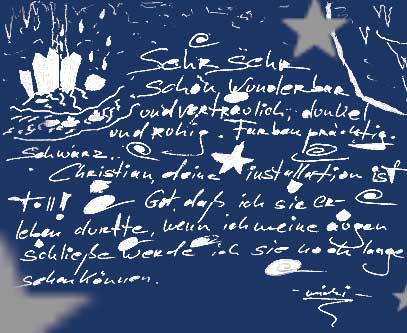 Sehr Sehr
Schön, Wunderbar
und vertraulich, dunkel
und ruhig. Farbenprächtig.
Schwarz.
Christian, deine installation ist
toll! Gut, daß ich sie er-
leben durfte, wenn ich meine augen
schließe werde ich sie noch lange
sehen können.